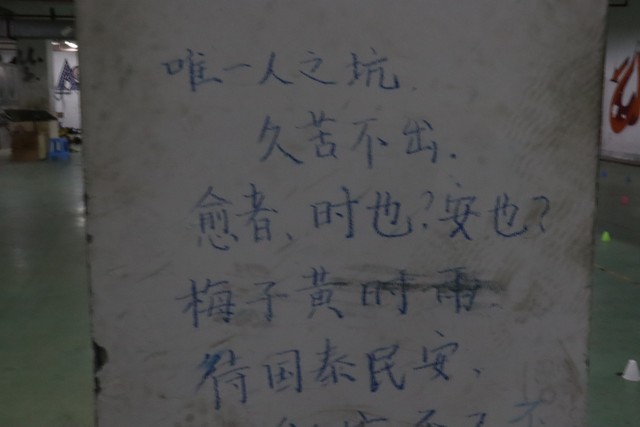 唯一人之坑.
久苦不出.
愈者、时也?安也?
梅子黄时雨.
待国泰民安、